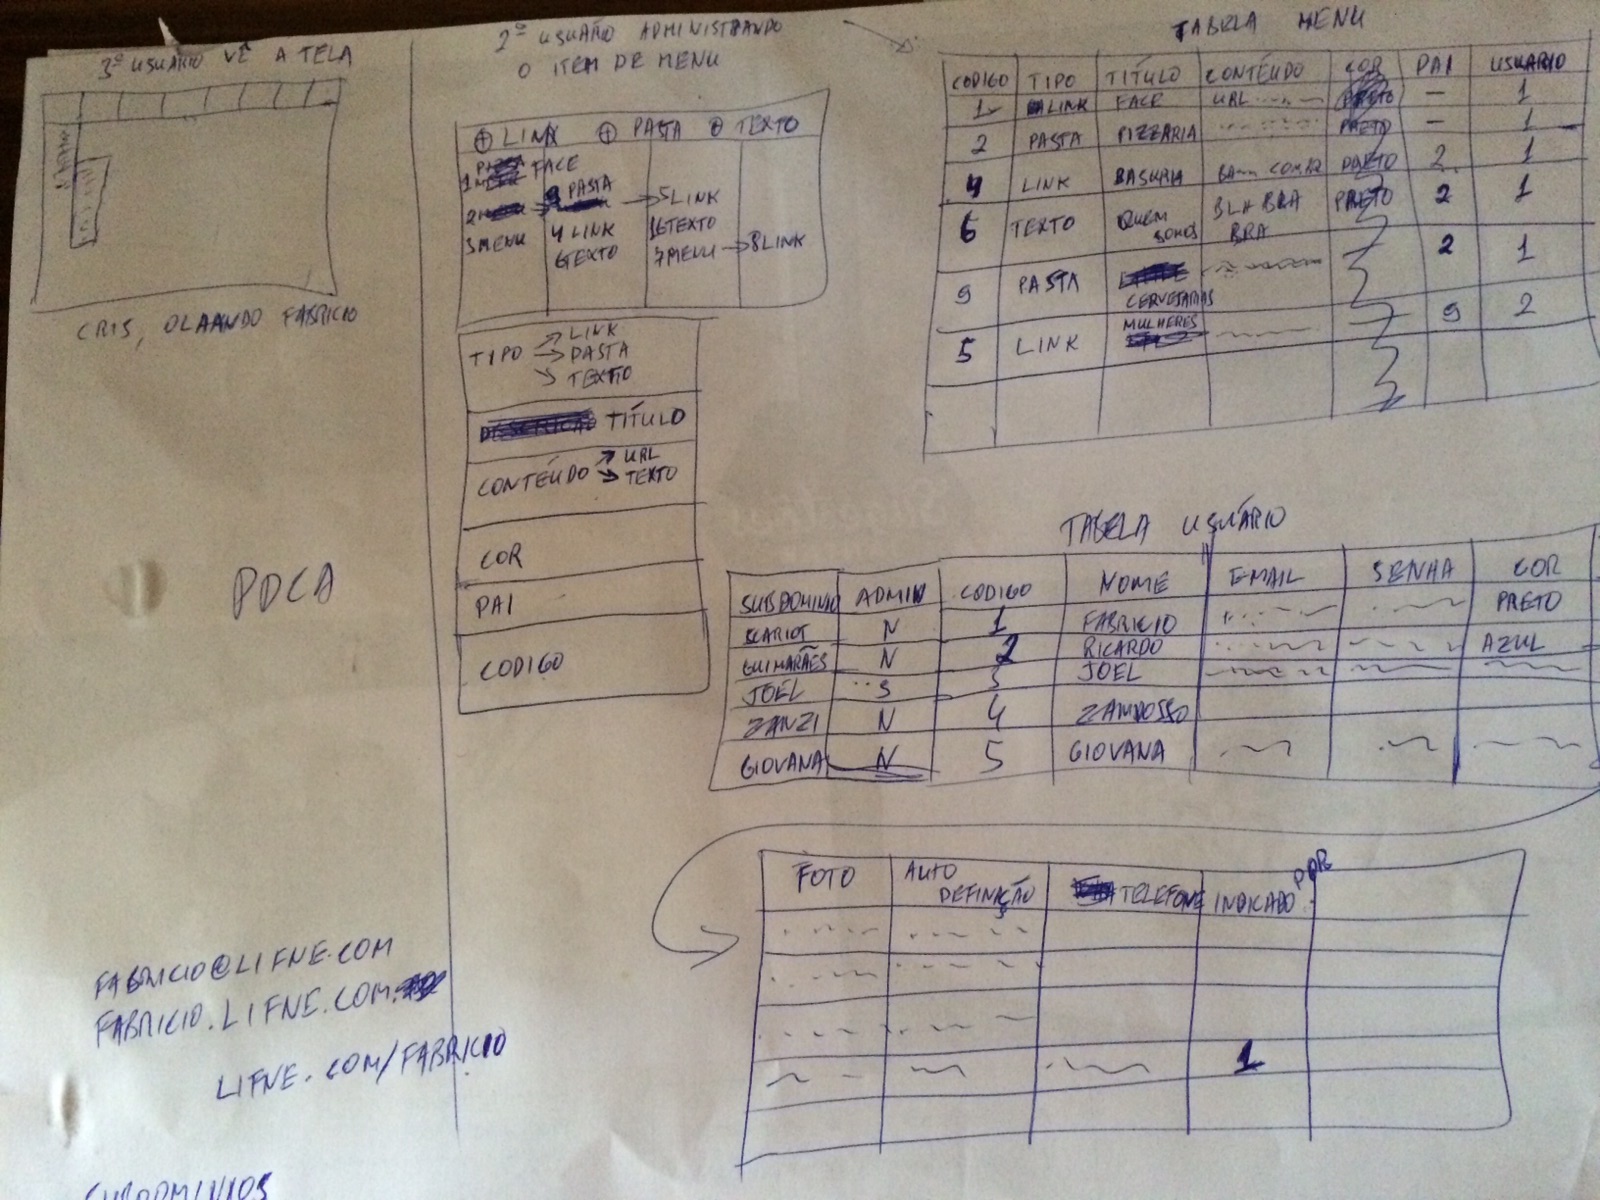 3º USUÁRIO VÊ A TELA
CRIS, OLAANDO FABRICIO
PDCA
FABRICIO@LIFNE.COM
FABRICIO.LIFNE.COM
LIFNE.COM/FABRICIO
SUBDOMINIOS
2º USUÁRIO ADMINISTRANDO
O ITEM DE MENU
+ LINK + PASTA + TEXTO
1 FACE
2 → 9 PASTA → 5 LINK
3 MENU 4 LINK 6 TEXTO
6 TEXTO 7 MENU → 8 LINK
TIPO → LINK
→ PASTA
→ TEXTO
TÍTULO
CONTEÚDO → URL
→ TEXTO
COR
PAI
CODIGO
TABELA MENU
CODIGO TIPO TÍTULO CONTEÚDO COR PAI USUARIO
1 LINK FACE URL PRETO — 1
2 PASTA PIZZARIA PRETO — 1
4 LINK PRETO 2 1
6 TEXTO QUEM SOMOS BLA BRA BRA PRETO 2 1
9 PASTA CERVEJARIAS 2 1
5 LINK MULHERES 9 2
TABELA USUÁRIO
SUBDOMINIO ADMIN CODIGO NOME EMAIL SENHA COR
SCARIOT N 1 FABRICIO PRETO
GUIMARÃES N 2 RICARDO AZUL
JOEL S 3 JOEL
ZANZI N 4
GIOVANA N 5 GIOVANA
FOTO AUTO DEFINIÇÃO TELEFONE INDICADO POR
1